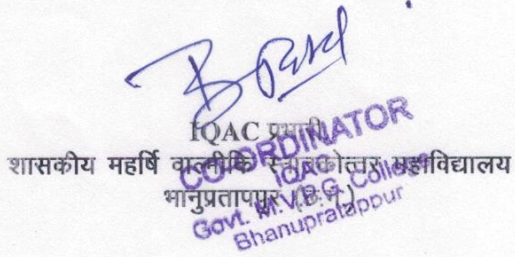 IQAC प्रभारी
शासकीय महर्षि वाल्मीकि स्नातकोत्तर महाविद्यालय
भानुप्रतापपुर (छ.ग.)
CO-ORDINATOR
IQAC
Govt. M.V.P.G. College
Bhanupratappur